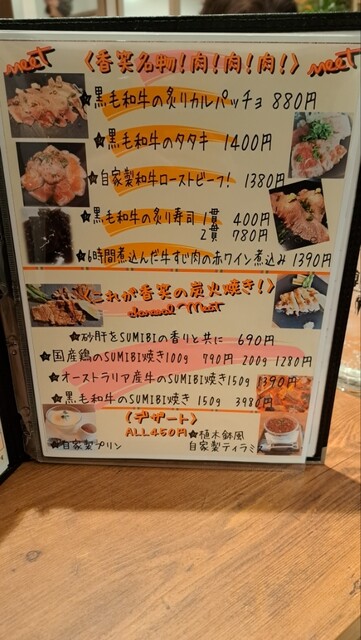 meet 〈香笑名物!肉!肉!肉!〉 meet
★黒毛和牛の炙りカルパッチョ 880円
★黒毛和牛のタタキ 1400円
★自家製和牛ローストビーフ! 1380円
★黒毛和牛の炙り寿司 1貫 400円
2貫 780円
★6時間煮込んだ牛すじ肉の赤ワイン煮込み 1390円
〈これが香笑の炭火焼き!〉
charcoal meet
★砂肝をSUMIBIの香りと共に 690円
★国産鶏のSUMIBI焼き100g 790円 200g 1280円
★オーストラリア産牛のSUMIBI焼き150g 1390円
★黒毛和牛のSUMIBI焼き 150g 3980円
〈デザート〉
ALL450円
★自家製プリン
★植木鉢風
自家製ティラミス